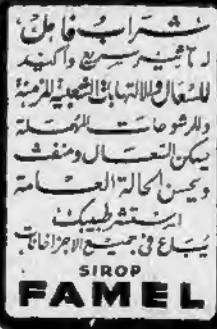 شراب فامل
له تأثير سريع وأكيد
للسعال وللالتهابات الشعبية المزمنة
وللرشوحات المهملة
يسكن السعال ومنفث
ويحسن الحالة العامة
استشر طبيبك
يباع في جميع الاجزاخانات
SIROP
FAMEL